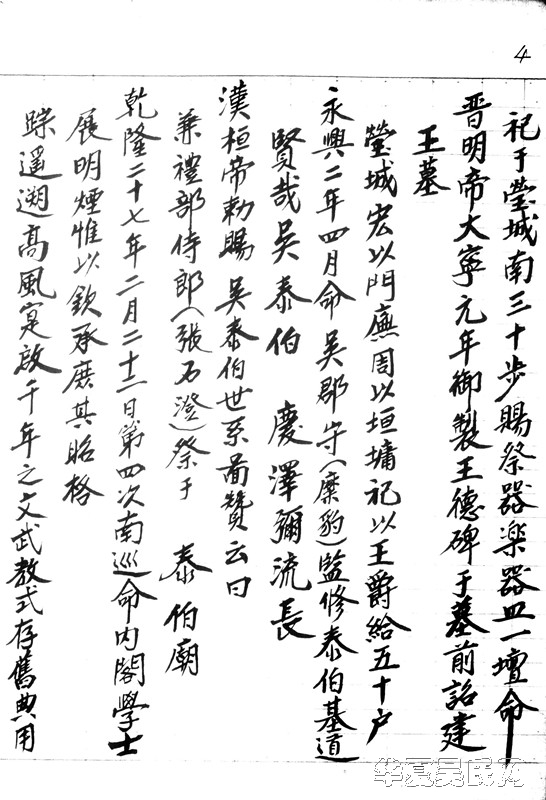 4
祀于塋城南三十步賜祭器楽器皿一壇命
晋明帝大寧元年御製王德碑于墓前詔建
王墓
塋城宏以門廡周以垣墉祀以王爵給五十户
永興二年四月命吴郡守(糜豹)監修泰伯墓道
賢哉吴泰伯 慶澤彌流長
漢桓帝勅賜 吴泰伯世系啚贊云曰
兼禮部侍郎(張石澄)祭于 泰伯廟
乾隆二十七年二月二十二日第四次南巡命内閣學士
展明煙惟以欽承庶其昭格
踪遥遡高風寔啟千年之文武教式存舊典用
华夏吴氏网